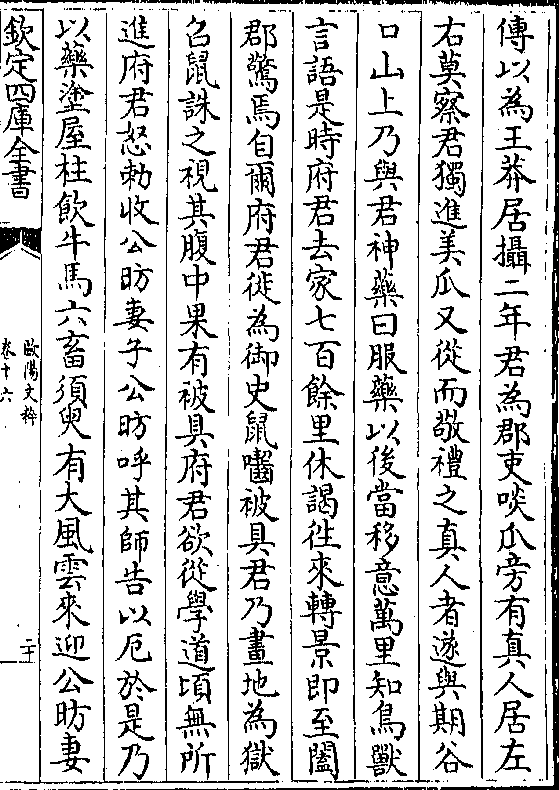 傳以為王莽居攝二年君為郡吏啖瓜旁有真人居左
右莫察君獨進美瓜又從而敬禮之真人者遂與期谷
口山上乃與君神藥曰服藥以後當移意萬里知鳥獸
言語是時府君去家七百餘里休謁徃來轉景即至闔
郡驚焉自爾府君徙為御史鼠嚙被具君乃畫地為獄
召鼠誅之視其腹中果有被具府君欲從學道頃無所
進府君怒勅收公昉妻子公昉呼其師告以厄於是乃
以藥塗屋柱飲牛馬六畜須臾有大風雲來迎公昉妻
欽定四庫全書
歐陽文粹
卷十六
二十